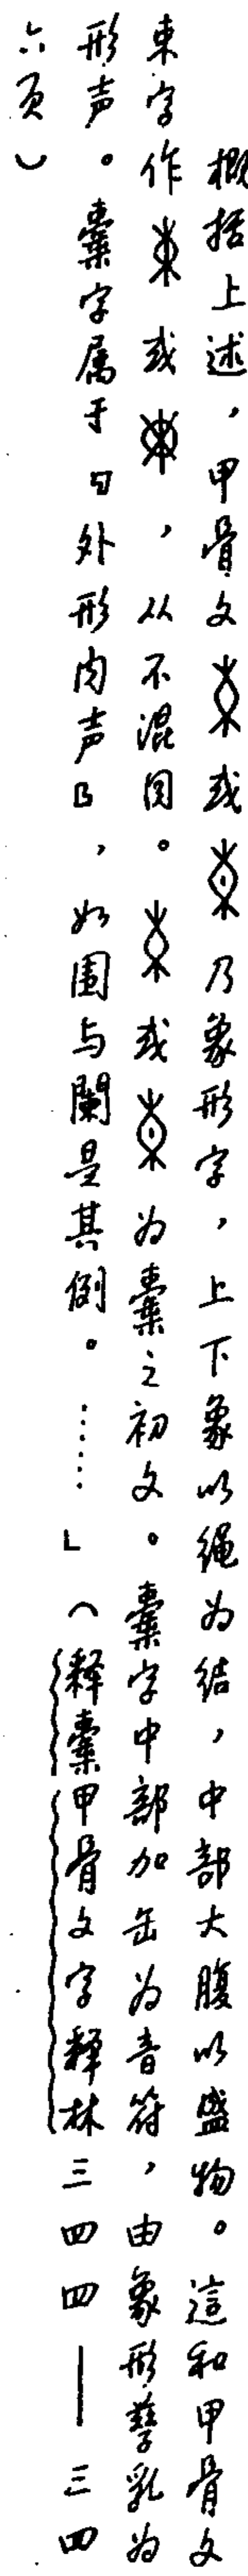 概括上述，甲骨文或乃象形字，上下象以绳为结，中部大腹以盛物。這和甲骨文
東字作或，从不混同。或为橐之初文。橐字中部加缶为音符，由象形孳乳为
形声。橐字属于“外形内声”，如围与闌是其例。……」（释橐甲骨文字释林三四四——三四
六页）